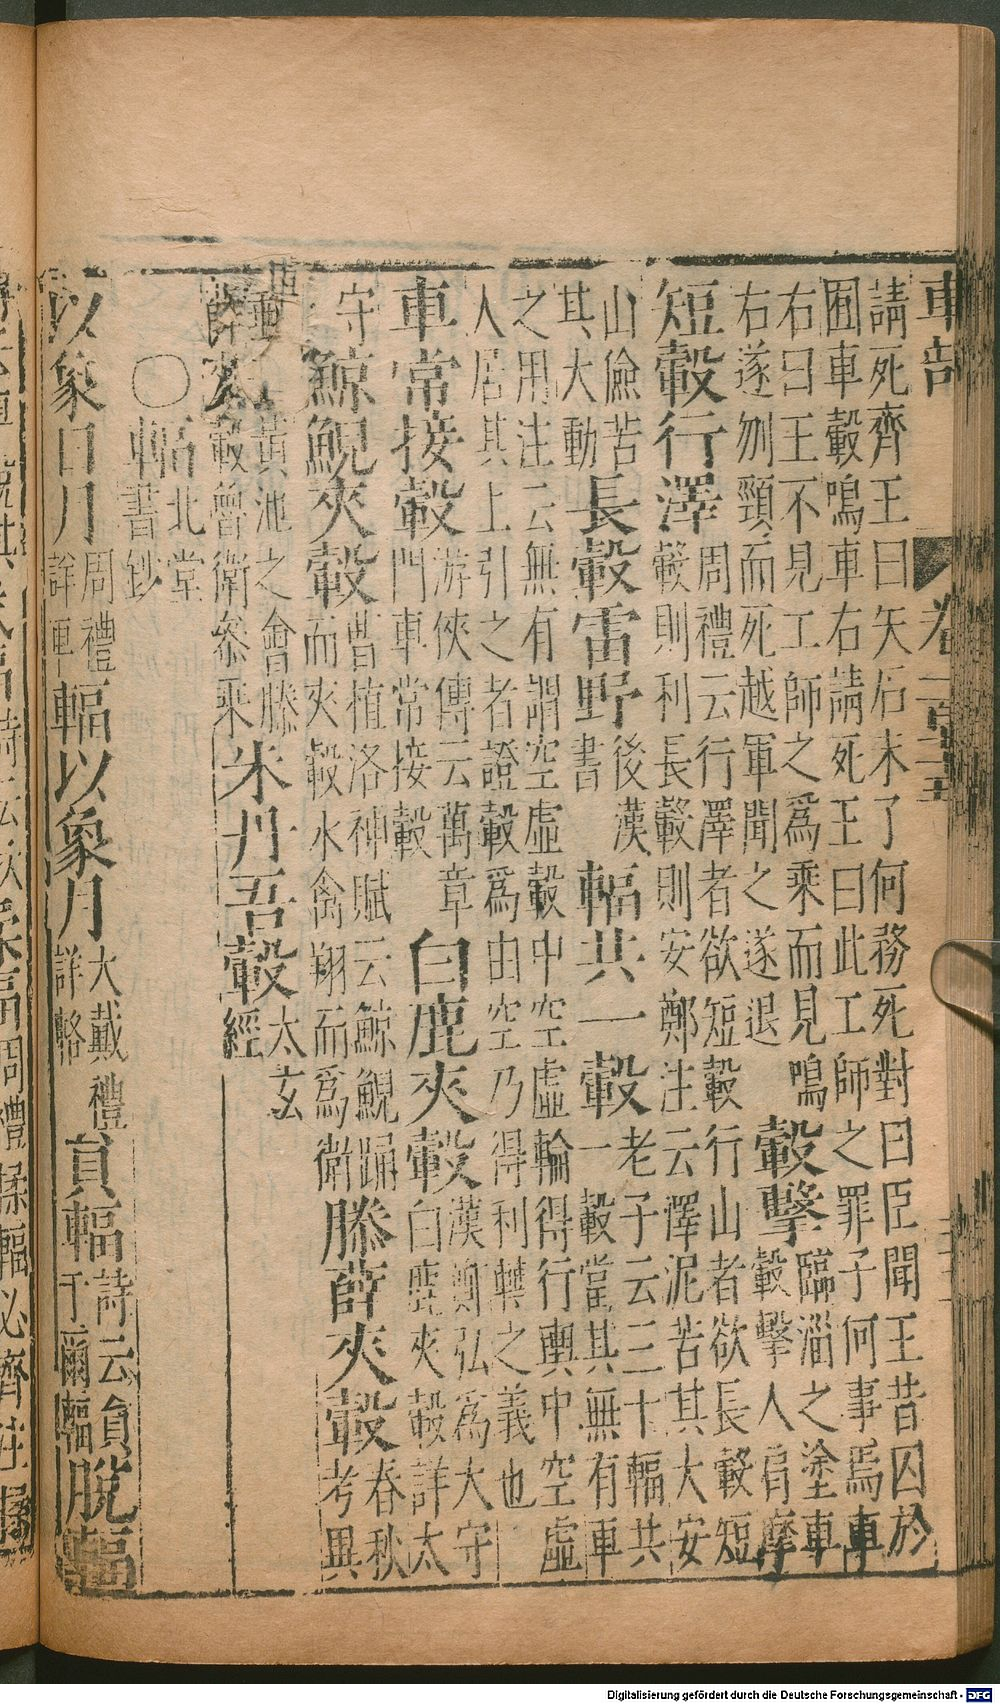 車部
卷一百二十五
請死齊王曰矢石未了何務死對曰臣聞王昔囚於
囿車轂鳴車右請死王曰此工師之罪子何事焉車
右曰王不見工師之爲乘而見鳴
右遂刎頸而死越軍聞之遂退
轂擊
臨淄之塗車
轂擊人肩摩
短轂行澤
周禮云行澤者欲短轂行山者欲長轂短
轂則利長轂則安鄭注云澤泥苦其大安
山險苦
其大動
長轂雷野
後漢
書
輻共一轂
老子云三十輻共
一轂當其無有車
之用注云無有謂空虛轂中空虛輪得行輿中空虛
人居其上引之者證轂爲由空乃得利轉之義也
車常接轂
游俠傳云萬章
門車常接轂
白鹿夾轂
漢鄭弘爲大守
白鹿夾轂詳太
守
鯨鯢夾轂
曹植洛神賦云鯨鯢踊
而夾轂水禽翔而爲衛
滕薛夾轂
春秋
考異
黃池之會滕
薛夾轂魯衛參乘
朱丹吾轂
太玄
經
○輻
北堂
書鈔
以象日月
周禮
詳車
輻以象月
大戴禮
詳輅
員輻
詩云員
于爾輻
脫輻
Digitalisierung gefördert durch die Deutsche Forschungsgemeinschaft - DFG